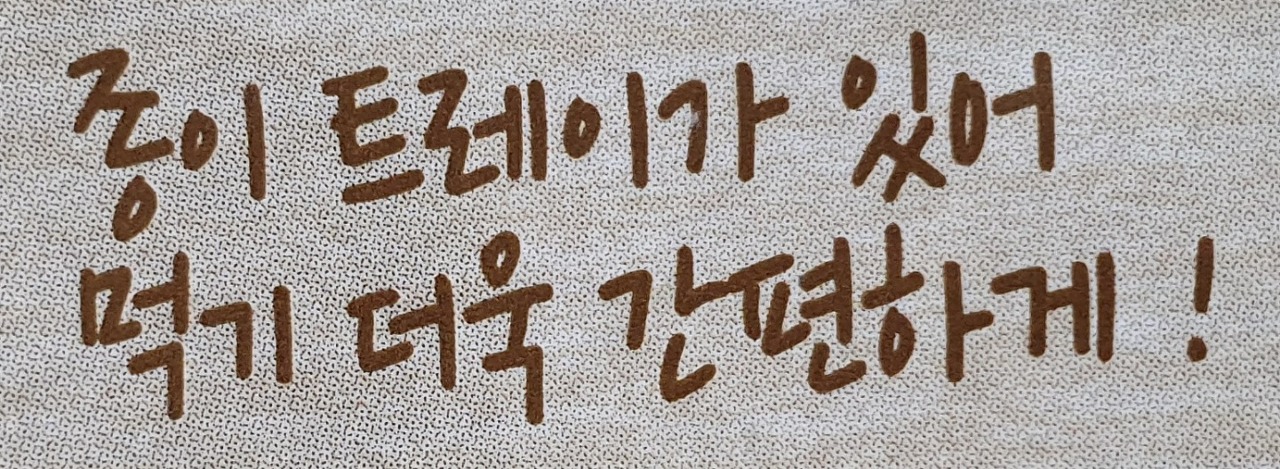 종이 트레이가 있어
먹기 더욱 간편하게 !